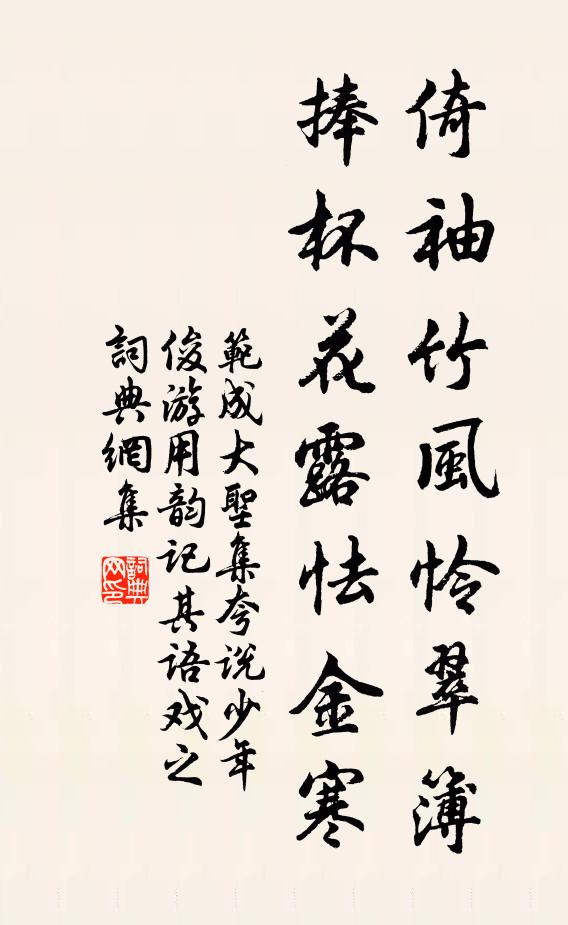 倚袖竹風怜翠簿
捧杯花露怯金寒
範成大聖集夸说少年
俊游用韵记其语戏之
詞典網集
詞典网印